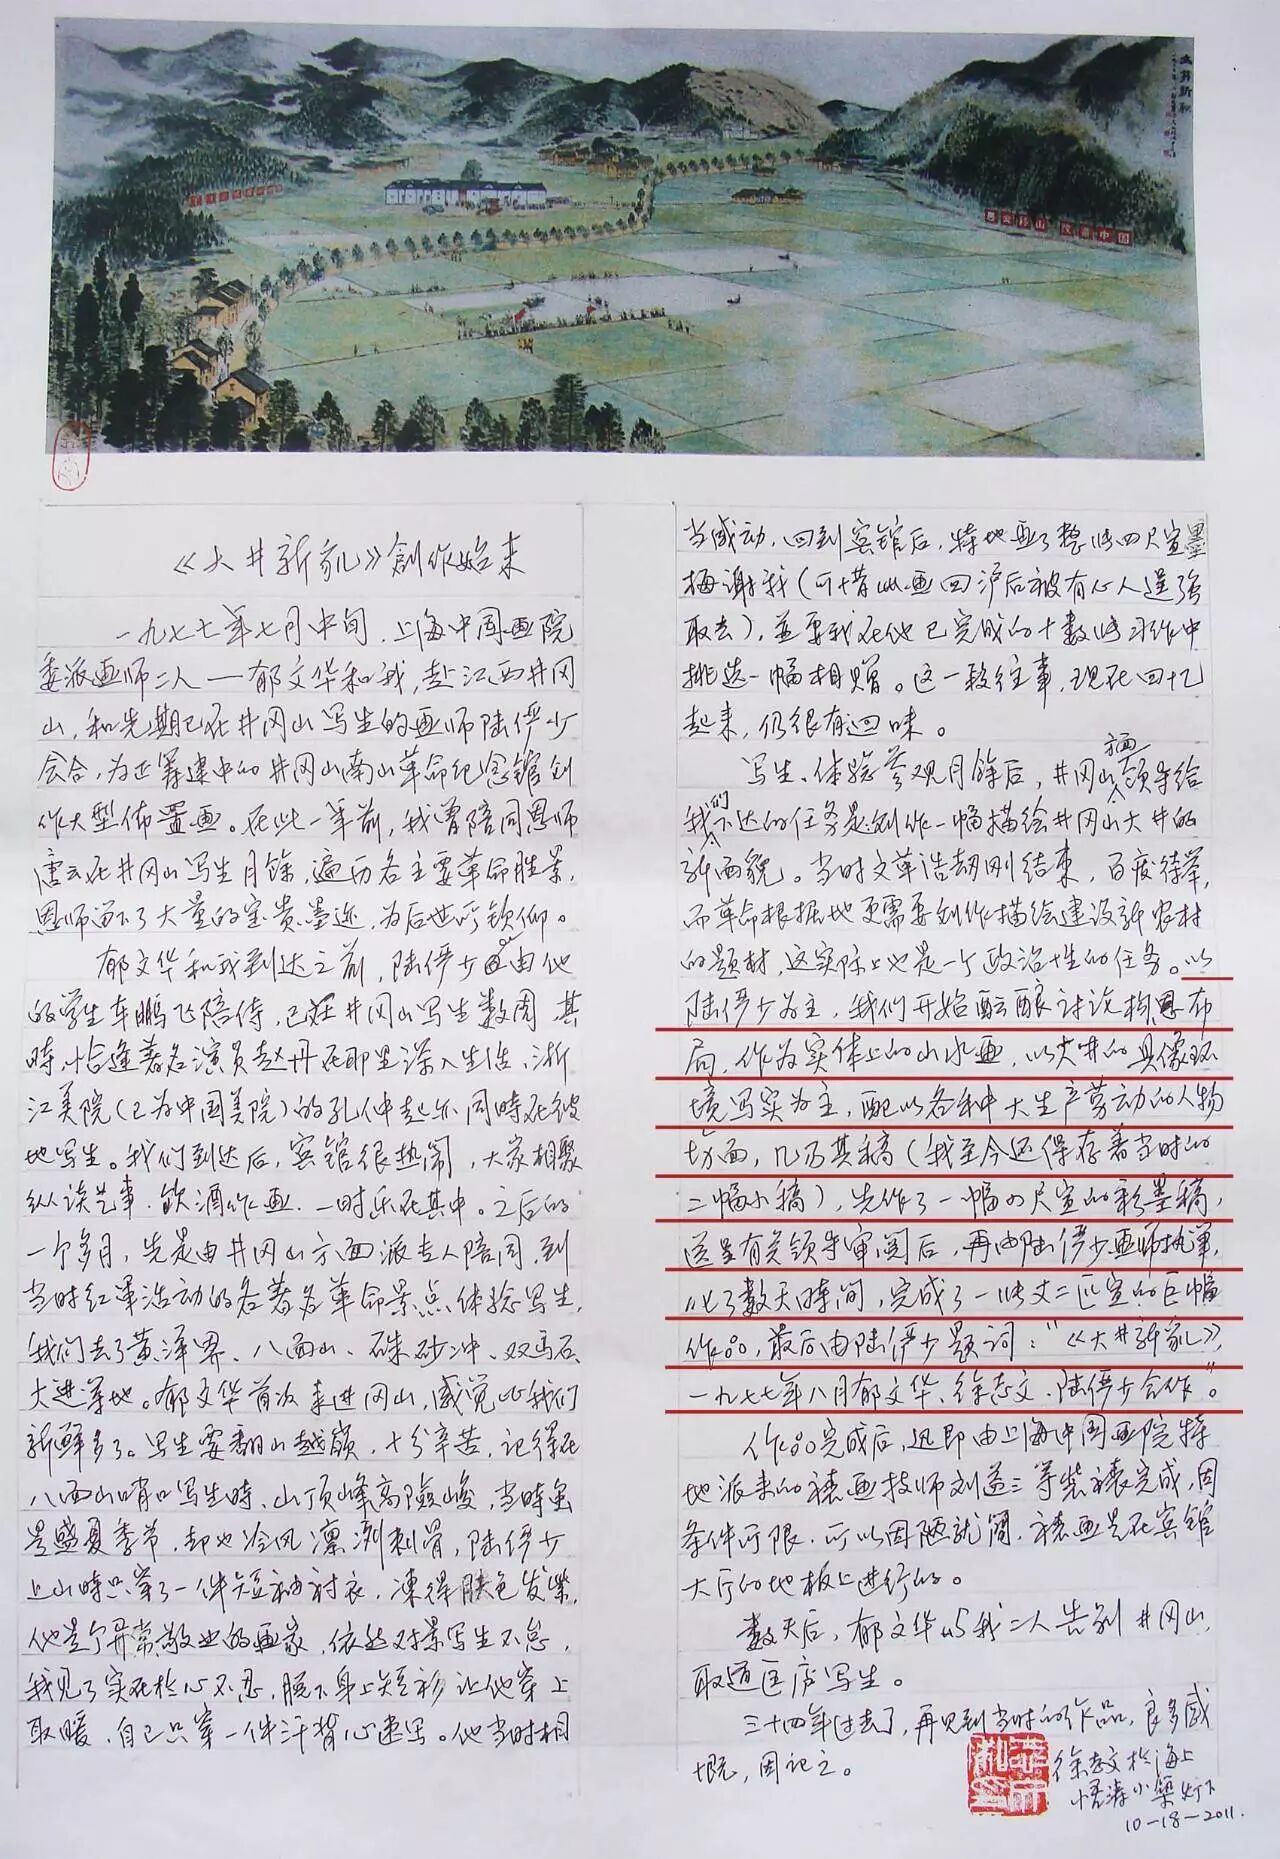 愚公移山 改造中国
《大井新貌》創作始末
一九七七年七月中旬，上海中国画院
委派画师二人——郁文华和我，赴江西井冈
山，和先期已在井冈山写生的画师陆俨少
会合，为正筹建中的井冈山南山革命纪念馆创
作大型佈置画。在此一年前，我曾陪同恩师
唐云在井冈山写生月馀，遍历各主要革命胜景，
恩师留下了大量的宝贵墨迹，为后世所钦仰。
郁文华和我到达之前，陆俨少已由他
的学生车鹏飞陪侍，已在井冈山写生数周，其
時，恰逢著名演员赵丹在那里深入生活，浙
江美院（已为中国美院）的孔仲起亦同時在彼
地写生。我们到达后，宾馆很热闹，大家相聚
纵谈艺事，飲酒作画，一时乐在其中。之后的
一个多月，先是由井冈山方面派专人陪同，到
当时红军活动的各著名革命景点体验写生，
我们去了黄洋界、八面山、硃砂冲、双马石、
大进等地。郁文华首次来井冈山，感觉比我们
新鲜多了。写生要翻山越嶺，十分辛苦，记得在
八面山哨口写生時，山顶峰高險峻，当時虽
是盛夏季节，却也冷风凛冽刺骨，陆俨少
上山時只穿了一件短袖衬衣，凍得肤色发紫，
他是个异常敬业的画家，依然对景写生不怠，
我见了实在於心不忍，脱下身上短衫让他穿上
取暖，自己只穿一件汗背心速写。他当时相
当感动，回到宾馆后，特地画了整张四尺宣墨
梅谢我（可惜此画回沪后被有心人逞强
取去），並要我在他已完成的十数张习作中
挑选一幅相赠。这一段往事，现在回忆
起来，仍很有迴味。
写生、体验参观月馀后，井冈山方面领导给
我们下达的任务是创作一幅描绘井冈山大井的
新面貌。当时文革浩劫刚结束，百废待举，
而革命根据地更需要创作描绘建设新农村
的题材，这实际上也是一个政治性的任务。以
陆俨少为主，我们开始酝酿讨论构思布
局，作为实体上的山水画，以大井的具像环
境写实为主，配以各种大生产劳动的人物
场面，几易其稿（我至今还保存着当时的
二幅小稿），先作了一幅四尺宣的彩墨稿，
送呈有关领导审阅后，再由陆俨少画师执笔，
化了数天時间，完成了一张丈二匹宣的巨幅
作品，最后由陆俨少题词：“《大井新貌》，
一九七七年八月郁文华、徐志文、陆俨少合作”。
作品完成后，迅即由上海中国画院特
地派来的裱画技师刘道三等装裱完成，因
条件所限，所以因陋就简，裱画是在宾馆
大厅的地板上进行的。
数天后，郁文华与我二人告别井冈山，
取道匡庐写生。
三十四年过去了，再见到当时的作品，良多感
慨，因记之。
徐志文於海上
悟涛小築灯下
10-18-2011.